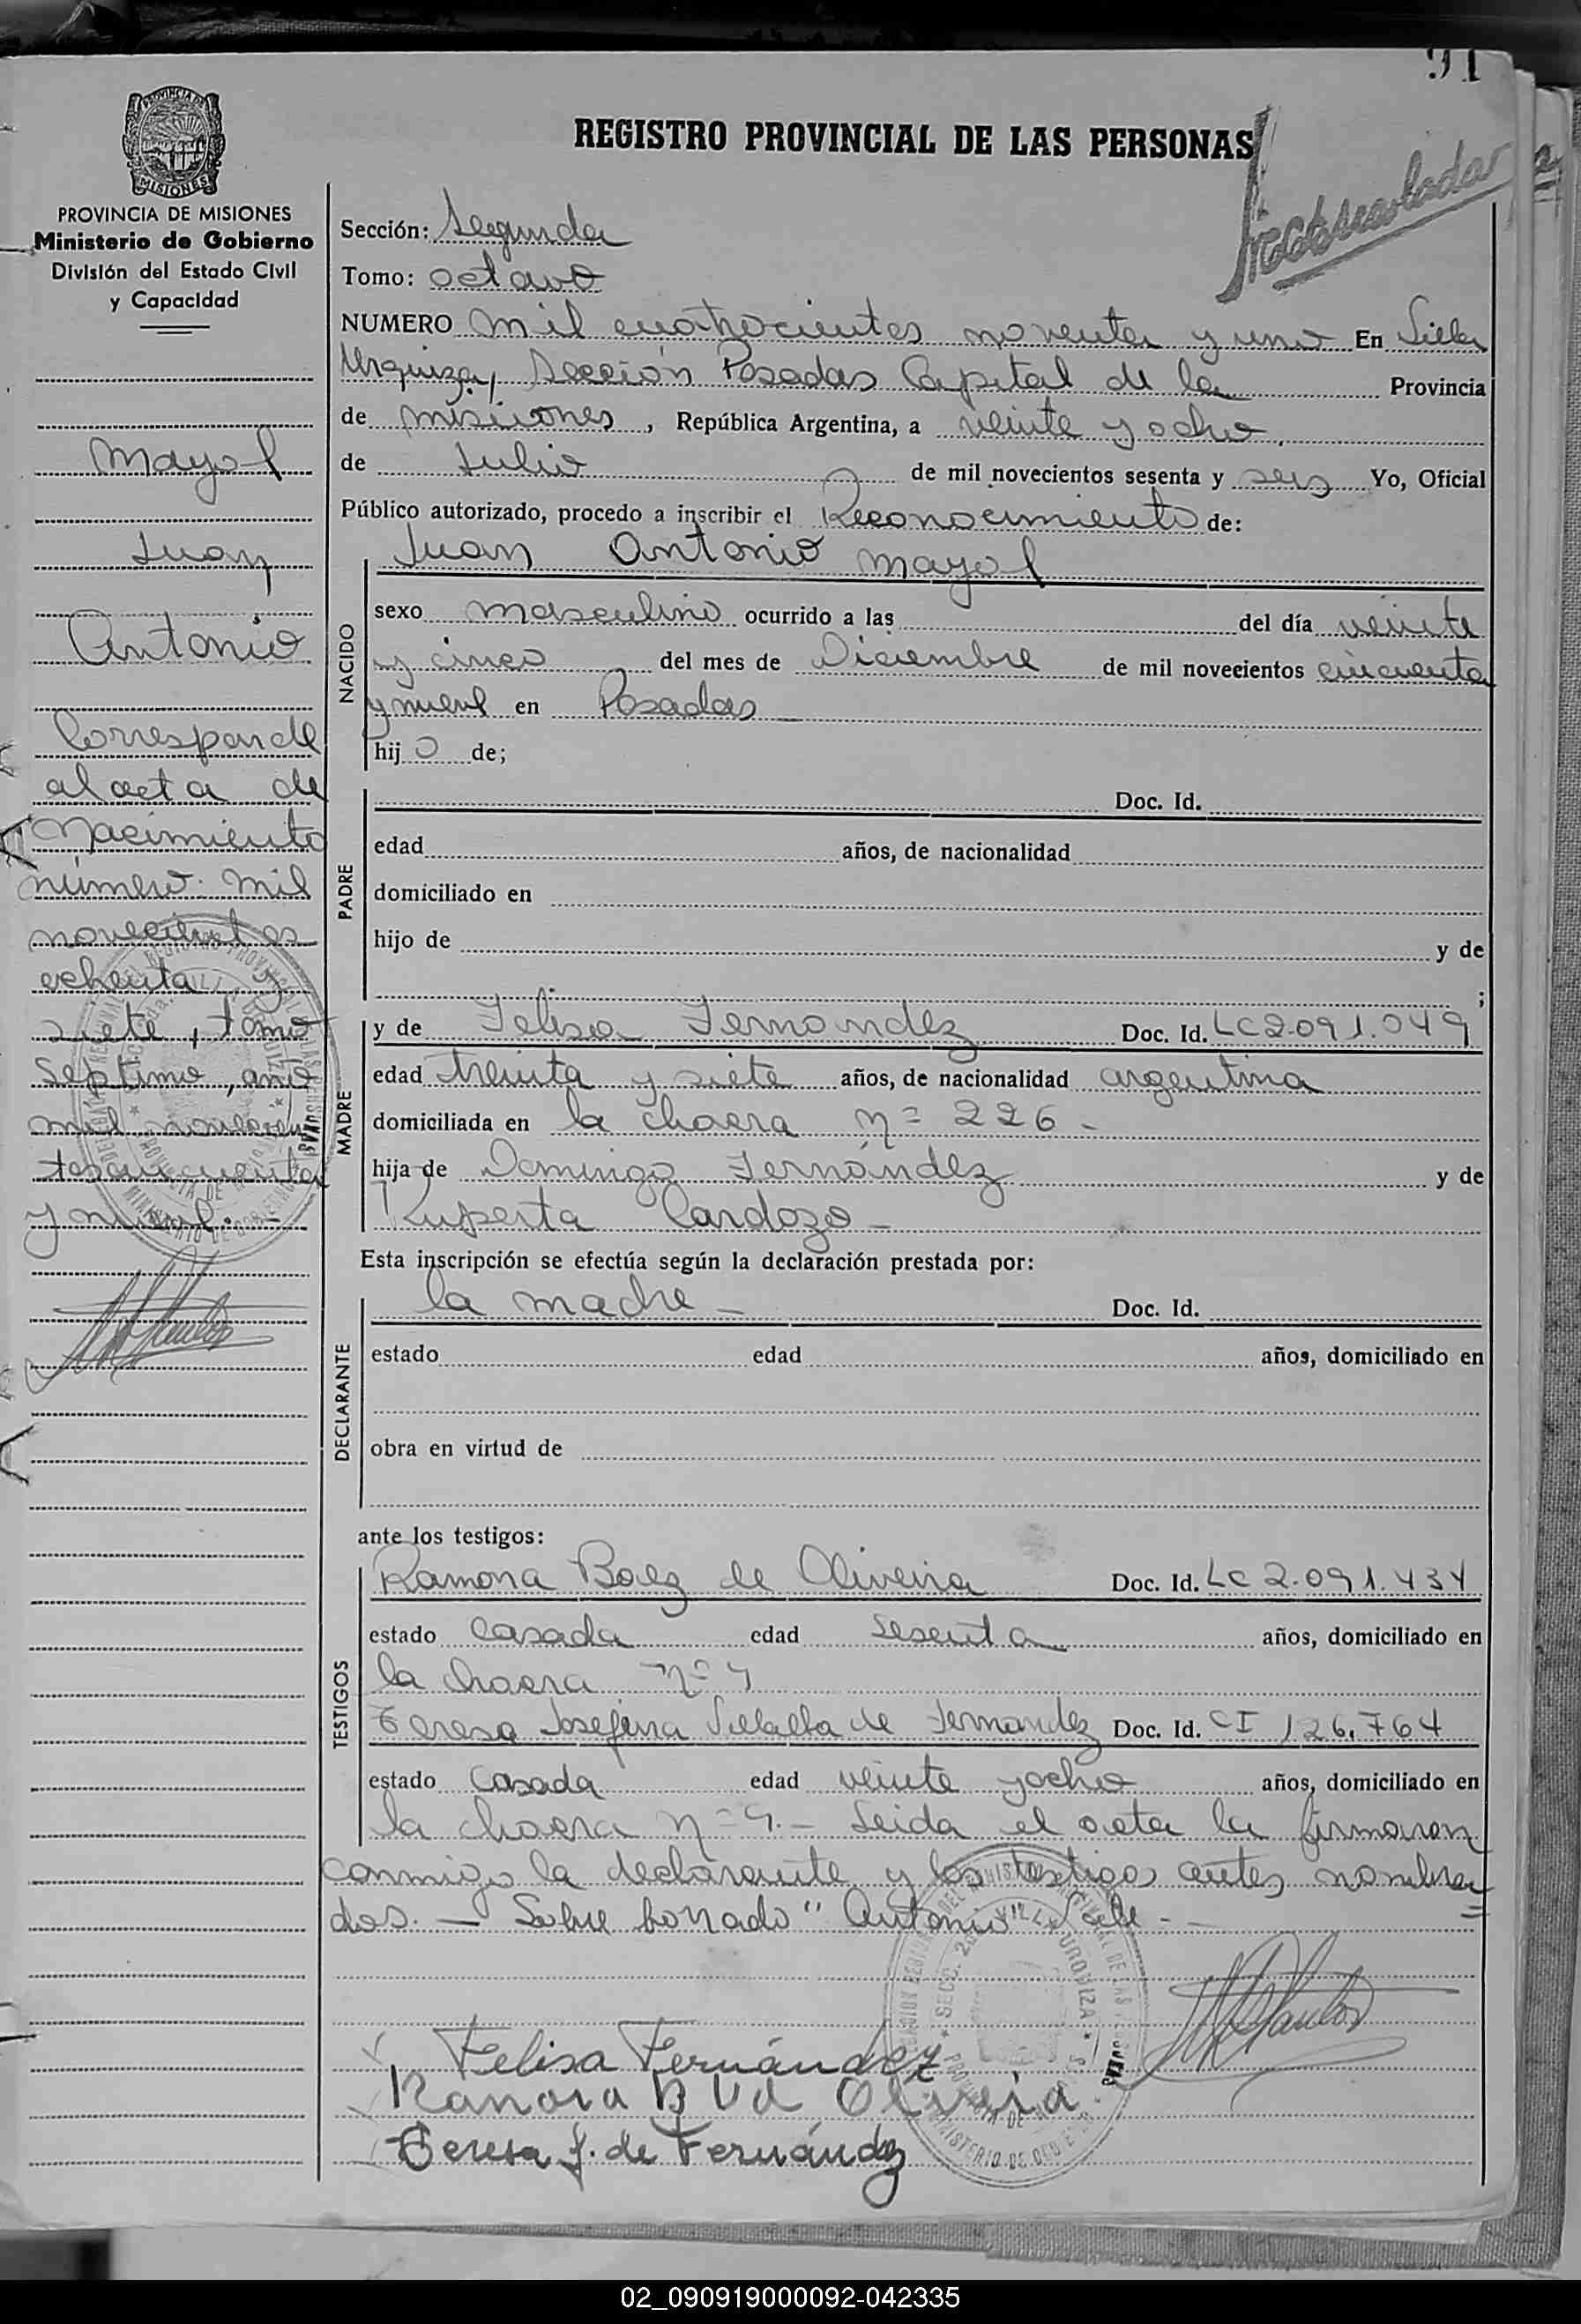 91
REGISTRO PROVINCIAL DE LAS PERSONAS
MISIONES
PROVINCIA DE MISIONES
Ministerio de Gobierno
División del Estado Civil
y Capacidad
Mayol
Juan
Antonio
Corresponde
al acta de
Nacimiento
número mil
novecientos
ochenta y
siete, tomo
septimo, año
mil novecien
tos cincuenta
y nueve.-
Sección: Segunda
Tomo: octavo
NUMERO mil cuatrocientos noventa y uno En Villa
Urquiza, Sección Posadas Capital de la Provincia
de misiones, República Argentina, a veinte y ocho
de Julio de mil novecientos sesenta y seis Yo, Oficial
Público autorizado, procedo a inscribir el Reconocimiento de:
Juan Antonio Mayol
NACIDO
sexo masculino ocurrido a las del día veinte
y cinco del mes de Diciembre de mil novecientos cincuenta
y nueve en Posadas
hijo de;
PADRE
Doc. Id.
edad años, de nacionalidad
domiciliado en
hijo de y de
;
MADRE
y de Felisa Fernandez Doc. Id. LC 2.091.049
edad treinta y siete años, de nacionalidad argentina
domiciliada en la chacra nº 226 -
hija de Domingo Fernández y de
Ruperta Cardozo -
Esta inscripción se efectúa según la declaración prestada por:
DECLARANTE
la madre - Doc. Id.
estado edad años, domiciliado en
obra en virtud de
ante los testigos:
TESTIGOS
Ramona Baez de Oliveira Doc. Id. LC 2.091.434
estado casada edad sesenta años, domiciliado en
la chacra nº
Teresa Josefina Villalba de Fernandez Doc. Id. CI 126.764
estado casada edad veinte y ocho años, domiciliado en
la chacra nº 9.- Leida el acta la firmaron
conmigo la declarante y los testigos antes nombra
dos. - Sobre borrado "Antonio" Vale -
Felisa Fernández
Ramona B Vd Oliveia
Teresa J. de Fernández
02_090919000092-042335